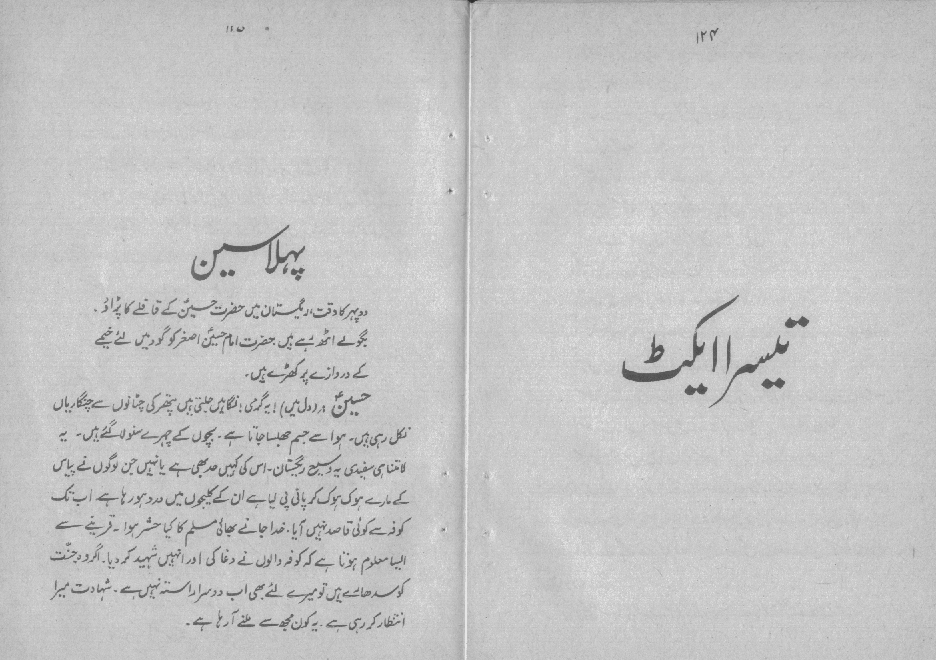 ۱۲۴
تیسرا ایکٹ
۱۲۵
پہلا سین
دوپہر کا وقت، ریگستان میں حضرت حسینؑ کے قافلے کا پڑاؤ۔
بگولے اٹھ رہے ہیں حضرت امام حسینؑ اصغر کو گود میں لئے خیمے
کے دروازے پر کھڑے ہیں۔
حسینؑ (دل میں) ! یہ گرمی ! نگاہیں جلتی ہیں پتھر کی چٹانوں سے چنگاریاں
نکل رہی ہیں۔ ہوا سے جسم جھلسا جاتا ہے۔ بچوں کے چہرے سنولا گئے ہیں۔ یہ
لامتناہی سفیدی یہ وسیع ریگستان۔ اس کی کہیں حد بھی ہے یا نہیں جن لوگوں نے پیاس
کے مارے ہوک ہوک کر پانی پی لیا ہے ان کے کلیجوں میں درد ہو رہا ہے اب تک
کوفہ سے کوئی قاصد نہیں آیا۔ خدا جانے بھائی مسلم کا کیا حشر ہوا۔ قرینے سے
ایسا معلوم ہوتا ہے کہ کوفہ والوں نے دغا کی اور انہیں شہید کر دیا۔ اگر وہ جنّت
کو سدھارے ہیں تو میرے لئے بھی اب دوسرا راستہ نہیں ہے۔ شہادت میرا
انتظار کر رہی ہے۔ یہ کون مجھ سے ملنے آ رہا ہے۔